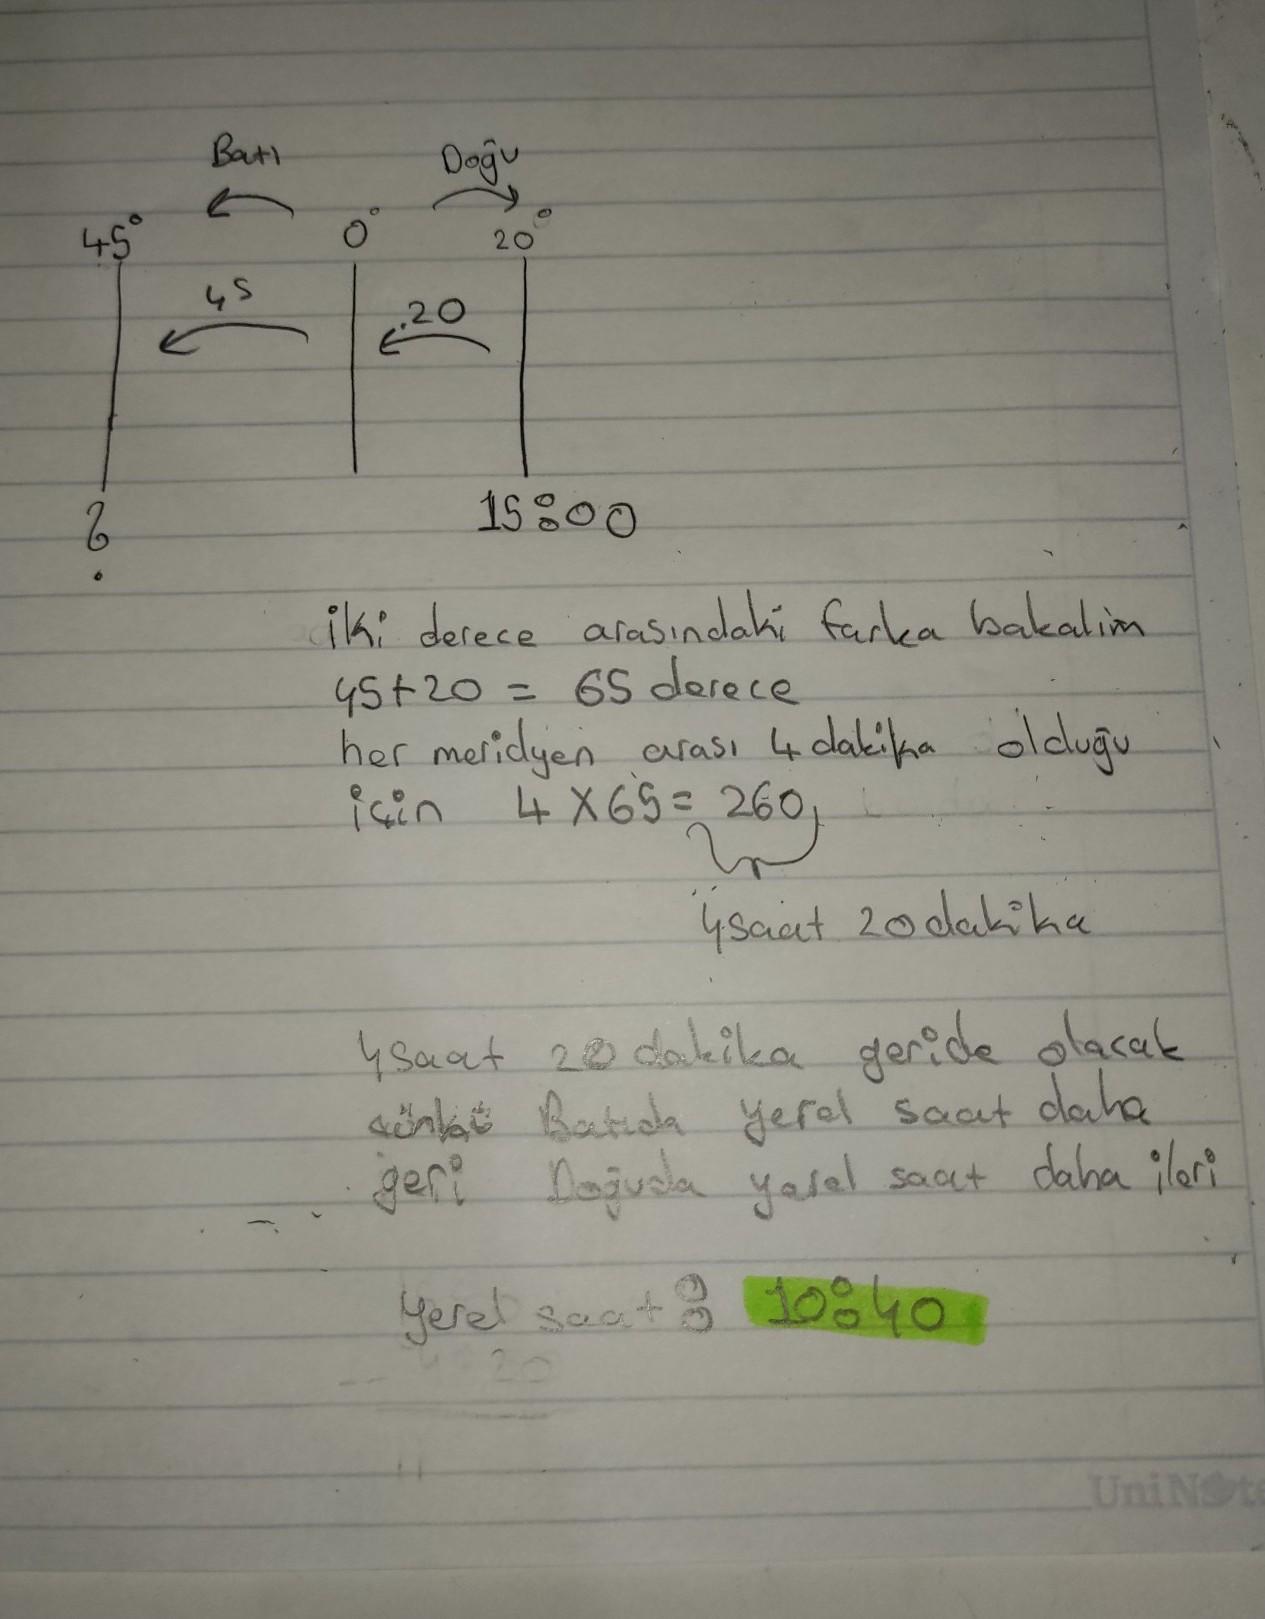 Batı Doğu
45° 0° 20°
45 20
? 15:00
iki derece arasındaki farka bakalım
45+20 = 65 derece
her meridyen arası 4 dakika olduğu
için 4 X 65 = 260
4 saat 20 dakika
4 saat 20 dakika geride olacak
çünkü Batıda yerel saat daha
geri Doğuda yerel saat daha ileri
Yerel saat : 10:40
20
UniNote